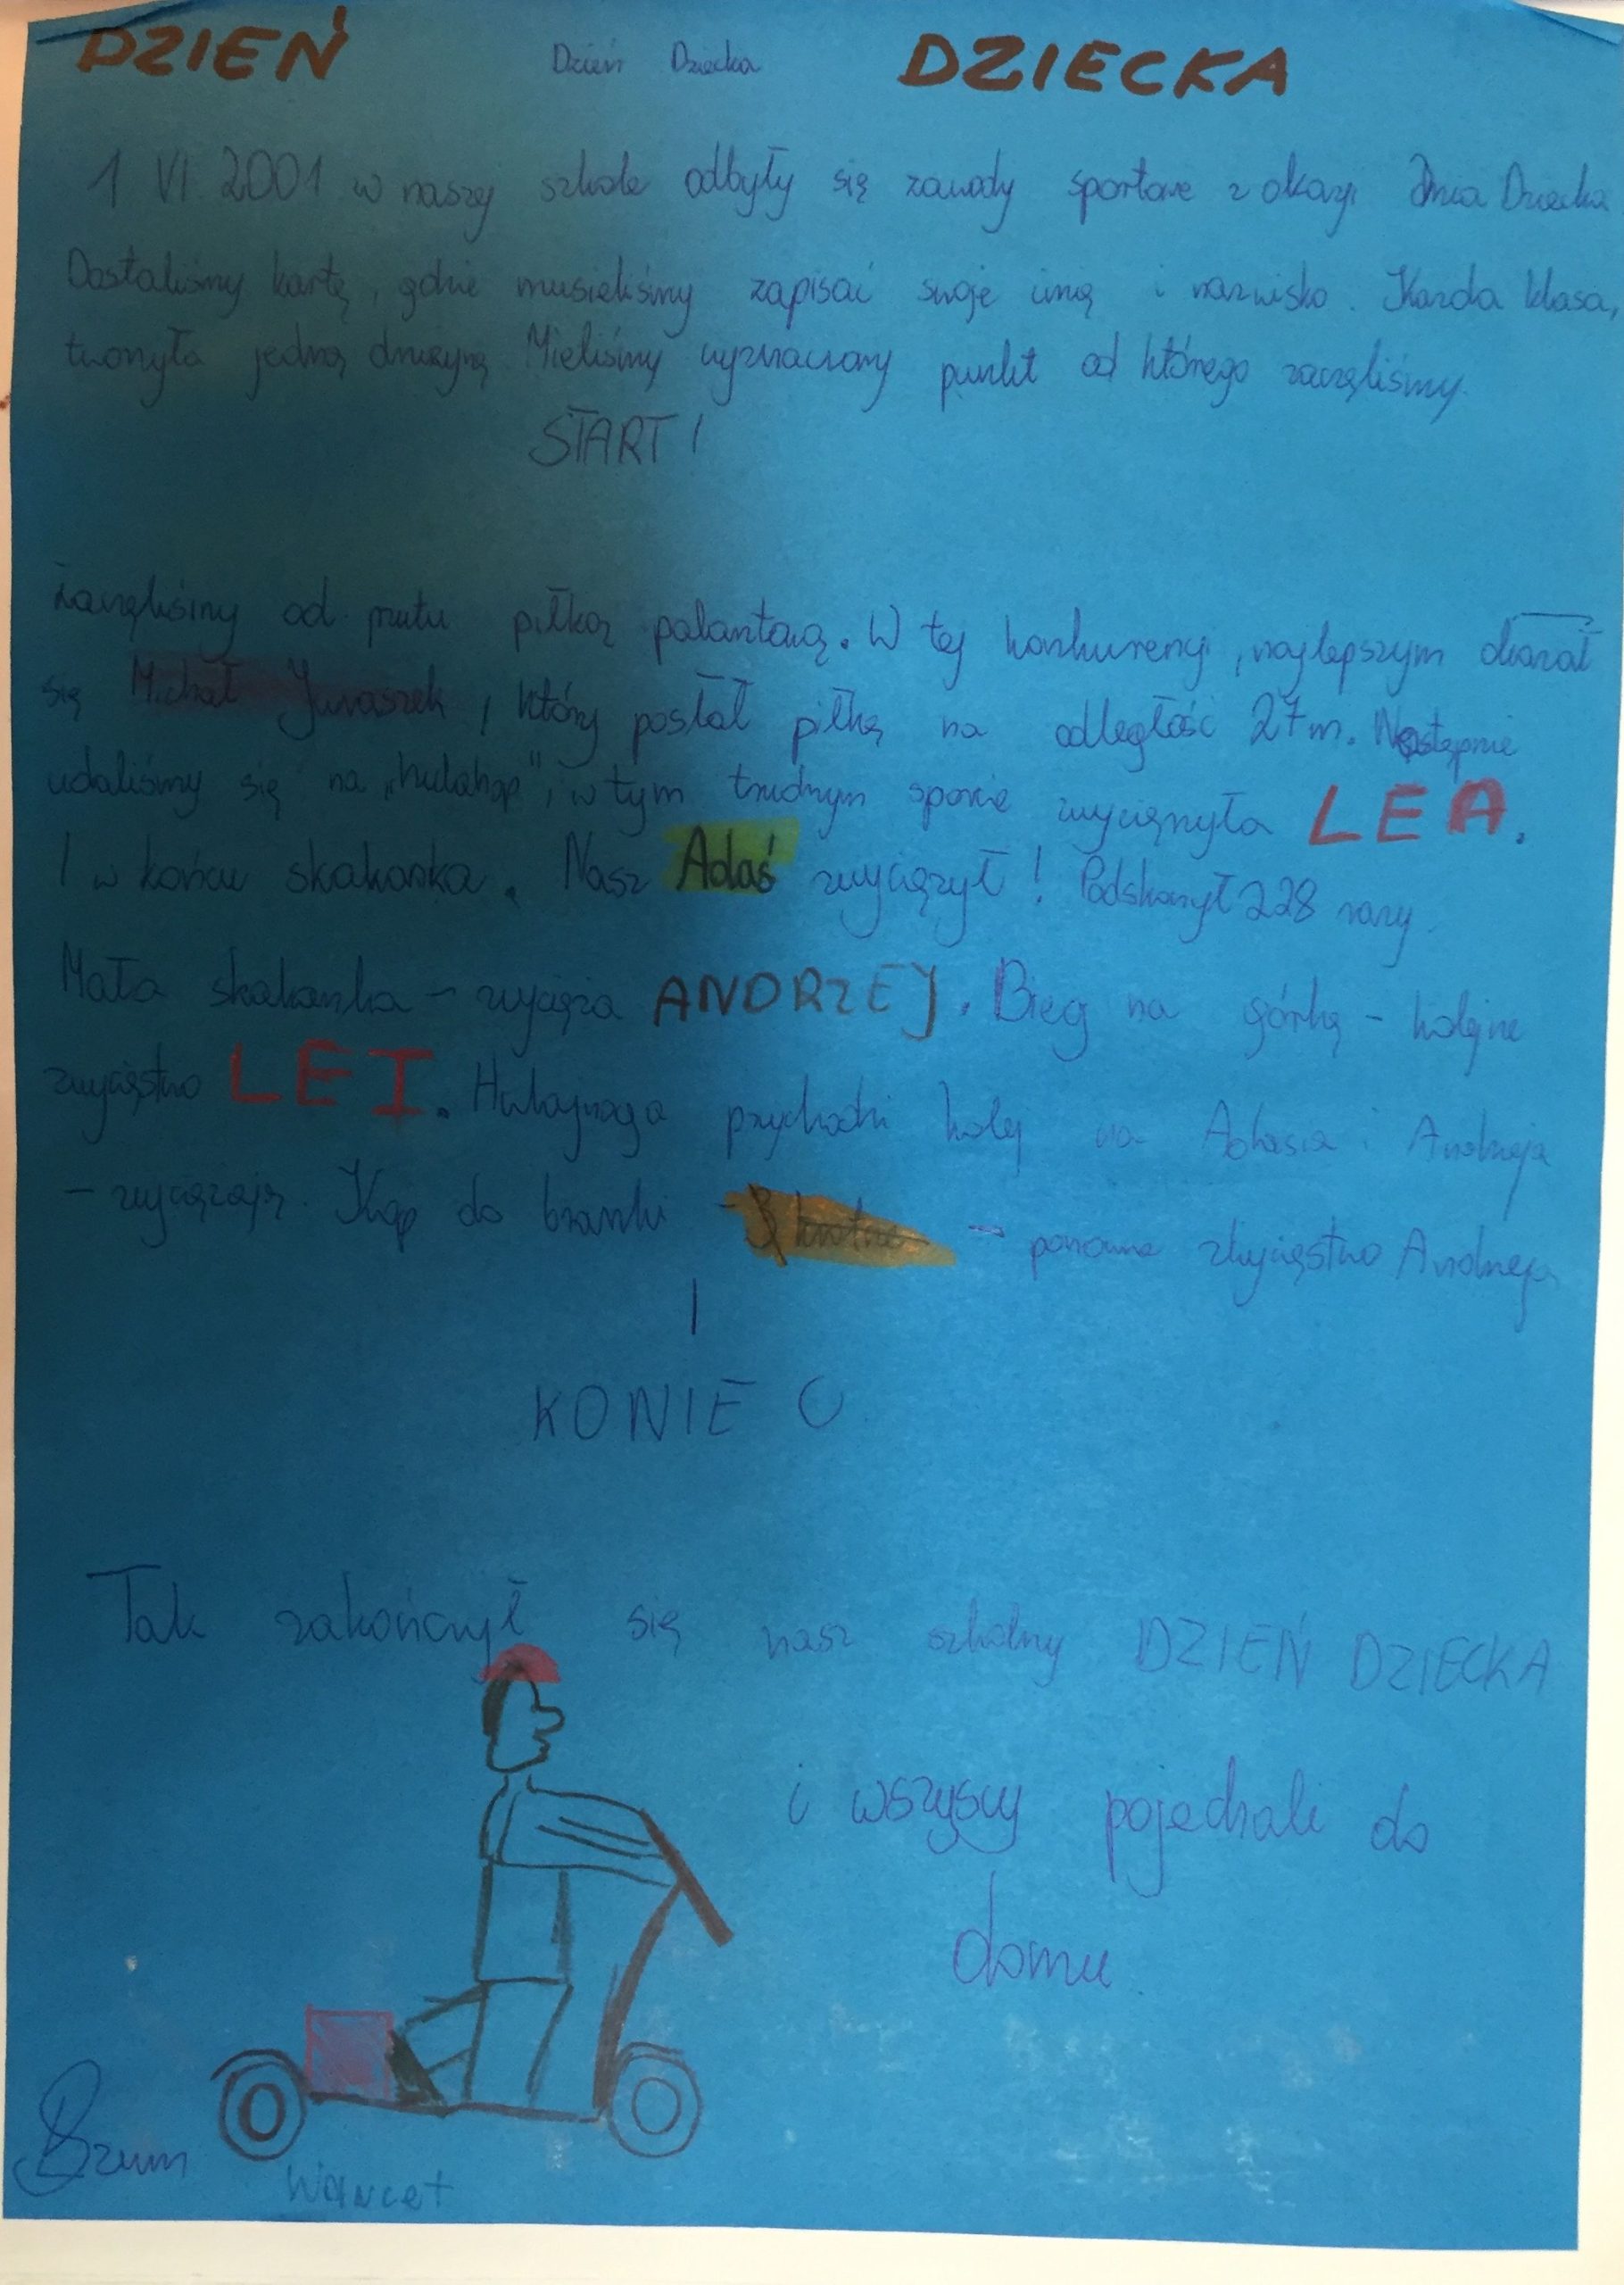 DZIEŃ Dzień Dziecka DZIECKA
1 VI 2001 w naszej szkole odbyły się zawody sportowe z okazji Dnia Dziecka
Dostaliśmy kartę, gdzie musieliśmy zapisać swoje imię i nazwisko. Każda klasa,
tworzyła jedną drużynę Mieliśmy wyznaczony punkt od którego zaczęliśmy.
START!
Zaczęliśmy od rzutu piłką palantową. W tej konkurencji, najlepszym okazał
się Michał Juraszek, który posłał piłkę na odległość 27m. Następnie
udaliśmy się na „hulahop", w tym trudnym sporcie zwyciężyła LEA.
I w końcu skakanka. Nasz Adaś zwyciężył! Podskoczył 228 razy.
Mała skakanka - zwycięża ANDRZEJ. Bieg na górkę - kolejne
zwycięstwo LEI. Hulajnoga przychodzi kolej na Adasia i Andrzeja
- zwyciężają. Kop do bramki - - ponowne zwycięstwo Andrzeja
I
KONIEC
Tak zakończył się nasz szkolny DZIEŃ DZIECKA
i wszyscy pojechali do
domu
Brum